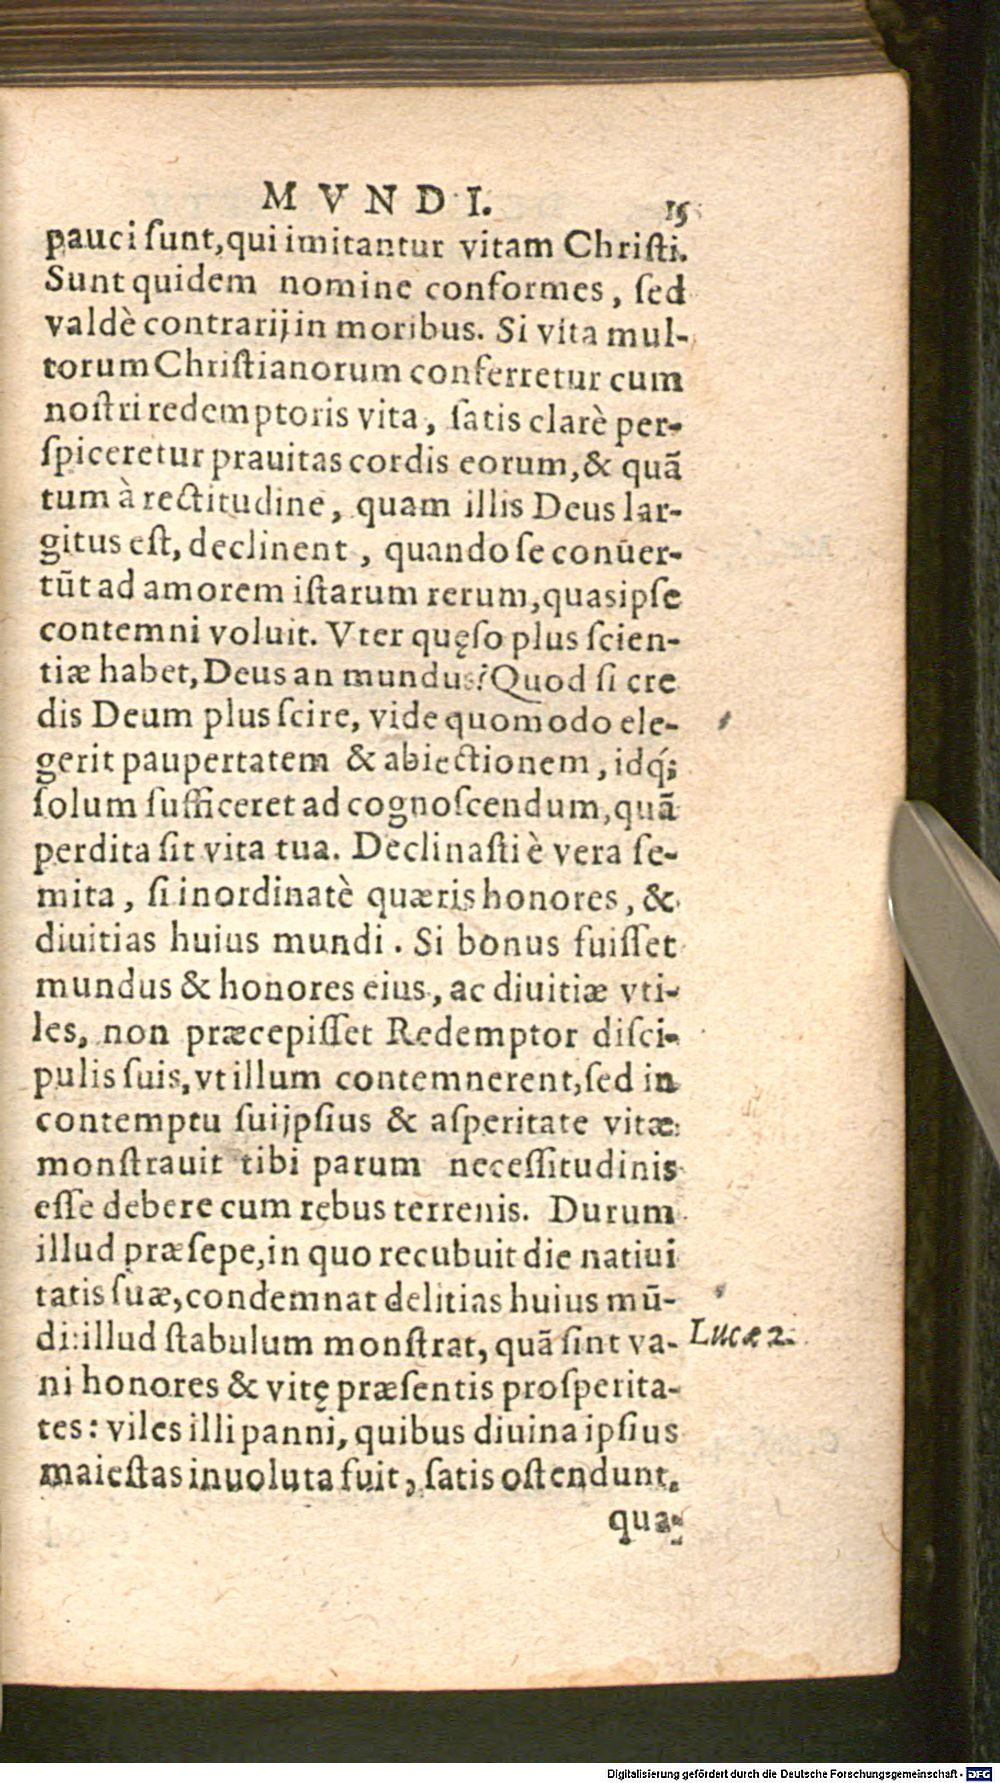 MVNDI. 15
pauci ſunt, qui imitantur vitam Chriſti.
Sunt quidem nomine conformes, ſed
valdè contrarij in moribus. Si vita mul-
torum Chriſtianorum conferretur cum
noſtri redemptoris vita, ſatis clarè per-
ſpiceretur prauitas cordis eorum, & quã
tum à rectitudine, quam illis Deus lar-
gitus eſt, declinent, quando ſe conũer-
tũt ad amorem iſtarum rerum, quas ipſe
contemni voluit. Vter quęſo plus ſcien-
tiæ habet, Deus an mundus? Quod ſi cre
dis Deum plus ſcire, vide quomodo ele-
gerit paupertatem & abiectionem, idq́;
ſolum ſufficeret ad cognoſcendum, quã
perdita ſit vita tua. Declinaſti è vera ſe-
mita, ſi inordinatè quæris honores, &
diuitias huius mundi. Si bonus fuiſſet
mundus & honores eius, ac diuitiæ vti-
les, non præcepiſſet Redemptor diſci-
pulis ſuis, vt illum contemnerent, ſed in
contemptu ſuijpſius & aſperitate vitæ
monſtrauit tibi parum neceſſitudinis
eſſe debere cum rebus terrenis. Durum
illud præſepe, in quo recubuit die natiui
tatis ſuæ, condemnat delitias huius mũ-
di: illud ſtabulum monſtrat, quã ſint va- Lucæ 2.
ni honores & vitę præſentis proſperita-
tes: viles illi panni, quibus diuina ipſius
maieſtas inuoluta fuit, ſatis oſtendunt,
qua-
Digitalisierung gefördert durch die Deutsche Forschungsgemeinschaft - DFG